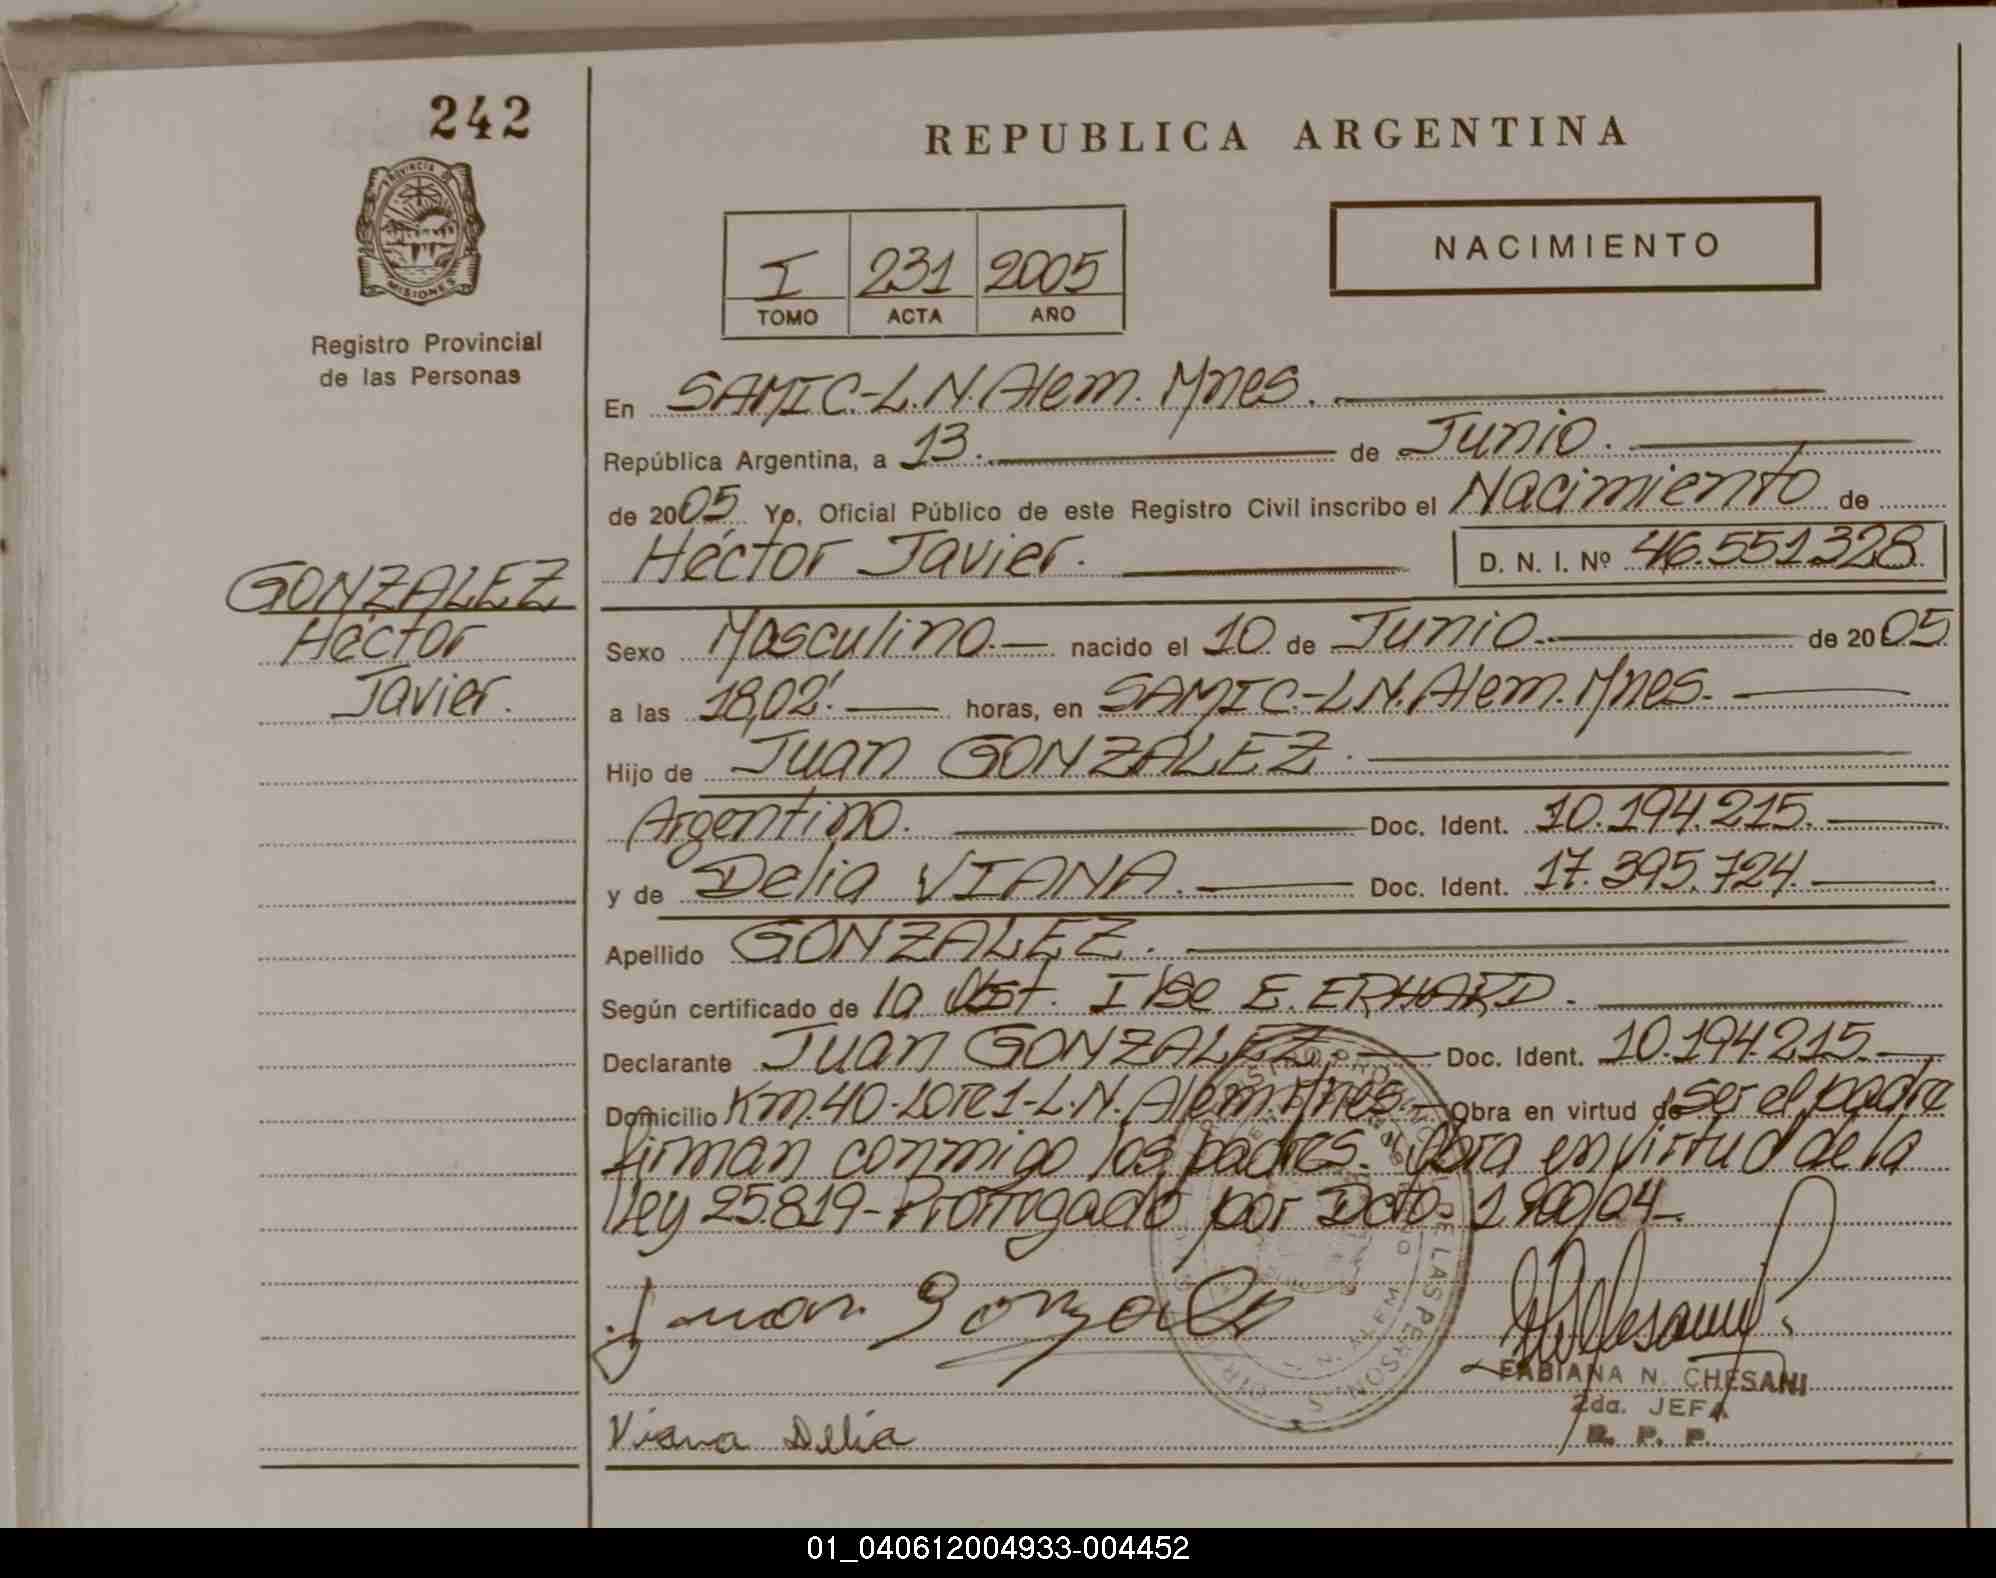 242
PROVINCIA DE
MISIONES
Registro Provincial
de las Personas
REPUBLICA ARGENTINA
I 231 2005
TOMO ACTA AÑO
NACIMIENTO
En SAMIC.-L.N.Alem. Mnes.
República Argentina, a 13. de Junio.
de 2005. Yo, Oficial Público de este Registro Civil inscribo el Nacimiento de
Héctor Javier. D. N. I. Nº 46.551.328.
GONZALEZ
Héctor
Javier.
Sexo Masculino. nacido el 10 de Junio. de 2005.
a las 18,02'. horas, en SAMIC.-L.N.Alem. Mnes.
Hijo de Juan GONZALEZ.
Argentino. Doc. Ident. 10.194.215.
y de Delia VIANA. Doc. Ident. 17.395.724.
Apellido GONZALEZ.
Según certificado de la Obst. Ilse E. ERHARD.
Declarante Juan GONZALEZ. Doc. Ident. 10.194.215.
Domicilio Km.40-Lote 1-L.N. Alem. Mnes. Obra en virtud de ser el padre
firman conmigo los padres. Obra en virtud de la
Ley 25.819- Prorrogado por Dcto. 1.900/04-
DE LAS PERSONAS
L. N. ALEM
Juan Gonzalez
FABIANA N. CHESANI
2da. JEFA
R. P. P.
Viana Delia
01_040612004933-004452